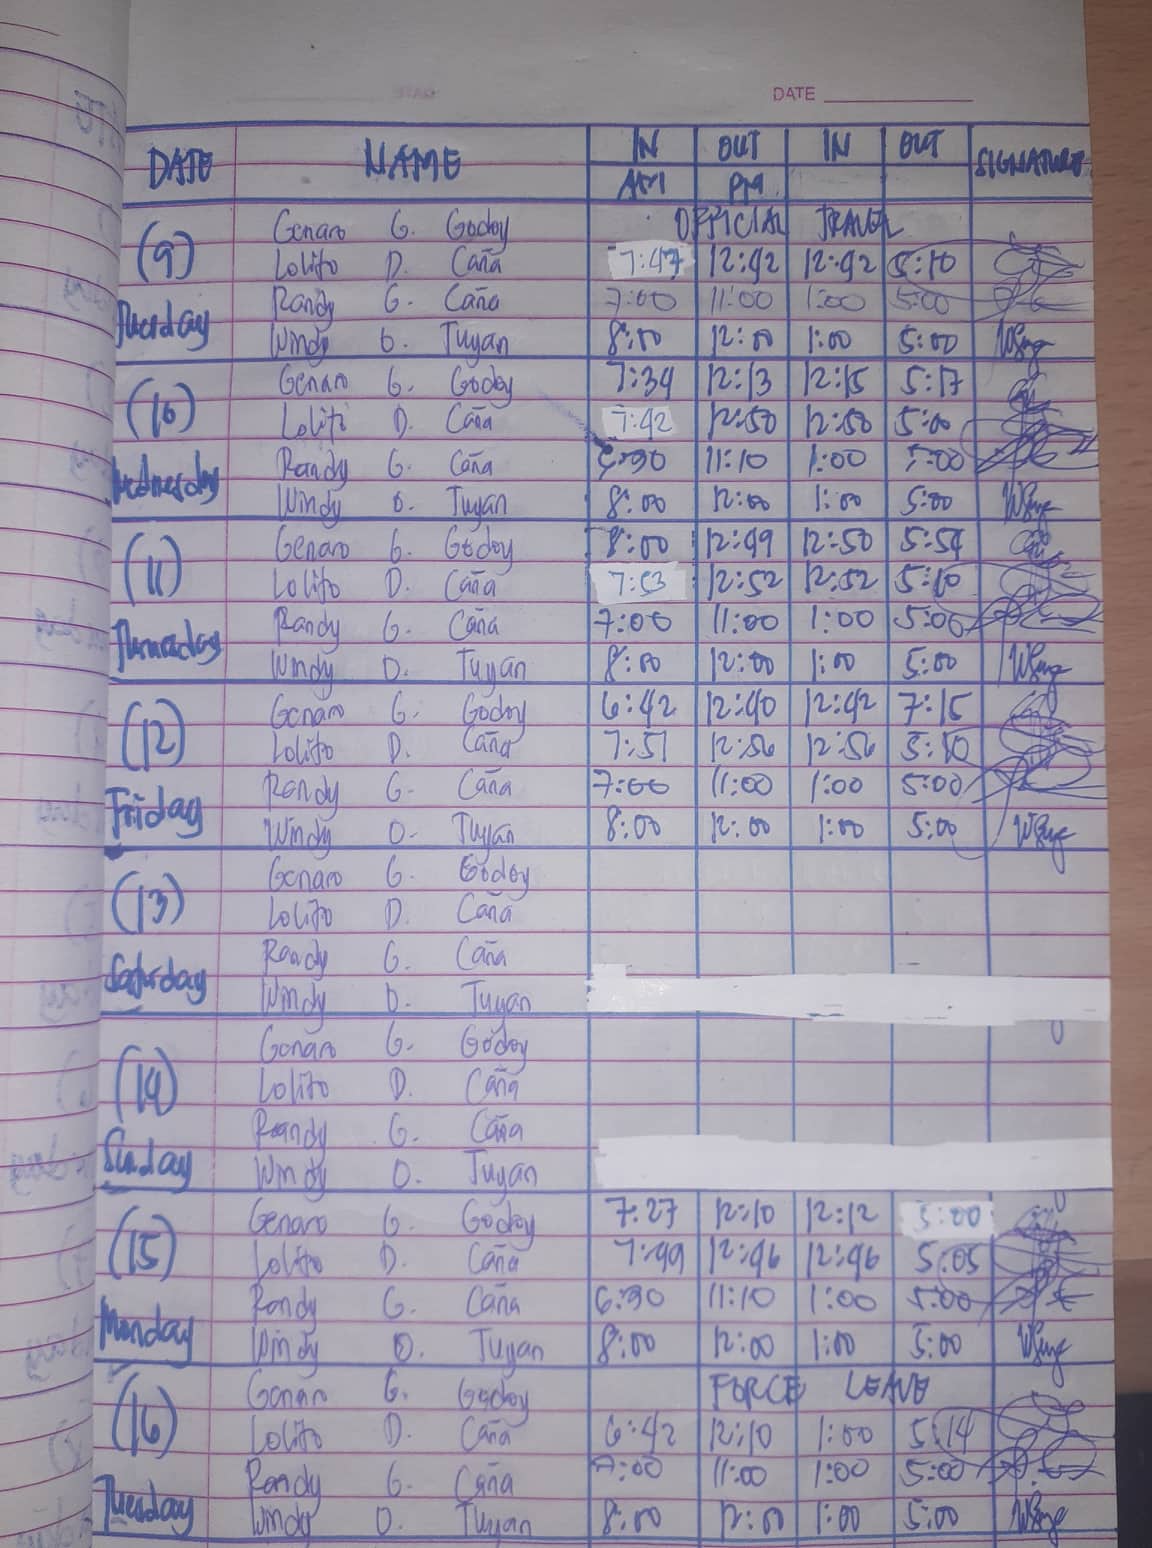 DATE
DATE NAME IN OUT IN OUT SIGNATURE
AM PM
(9) Genaro G. Godoy OFFICIAL TRAVEL
Lolito D. Caña 7:47 12:42 12:42 5:10
Tuesday Randy G. Caña 7:00 11:00 1:00 5:00
Windy D. Tuyan 8:00 12:00 1:00 5:00
(10) Genaro G. Godoy 7:34 12:13 12:15 5:17
Lolito D. Caña 7:42 12:50 12:50 5:00
Wednesday Randy G. Caña 6:30 11:10 1:00 5:00
Windy D. Tuyan 8:00 12:00 1:00 5:00
(11) Genaro G. Godoy 8:00 12:49 12:50 5:54
Lolito D. Caña 7:53 12:52 12:52 5:10
Thursday Randy G. Caña 7:00 11:00 1:00 5:00
Windy D. Tuyan 8:00 12:00 1:00 5:00
(12) Genaro G. Godoy 6:42 12:40 12:42 7:15
Lolito D. Caña 7:51 12:56 12:56 5:10
Friday Randy G. Caña 7:00 11:00 1:00 5:00
Windy D. Tuyan 8:00 12:00 1:00 5:00
(13) Genaro G. Godoy
Lolito D. Caña
Saturday Randy G. Caña
Windy D. Tuyan
(14) Genaro G. Godoy
Lolito D. Caña
Sunday Randy G. Caña
Windy D. Tuyan
(15) Genaro G. Godoy 7:27 12:10 12:12 5:00
Lolito D. Caña 7:49 12:46 12:46 5:05
Monday Randy G. Caña 6:30 11:10 1:00 5:00
Windy D. Tuyan 8:00 12:00 1:00 5:00
(16) Genaro G. Godoy FORCE LEAVE
Lolito D. Caña 6:42 12:10 1:00 5:14
Tuesday Randy G. Caña 7:00 11:00 1:00 5:00
Windy D. Tuyan 8:00 12:00 1:00 5:00